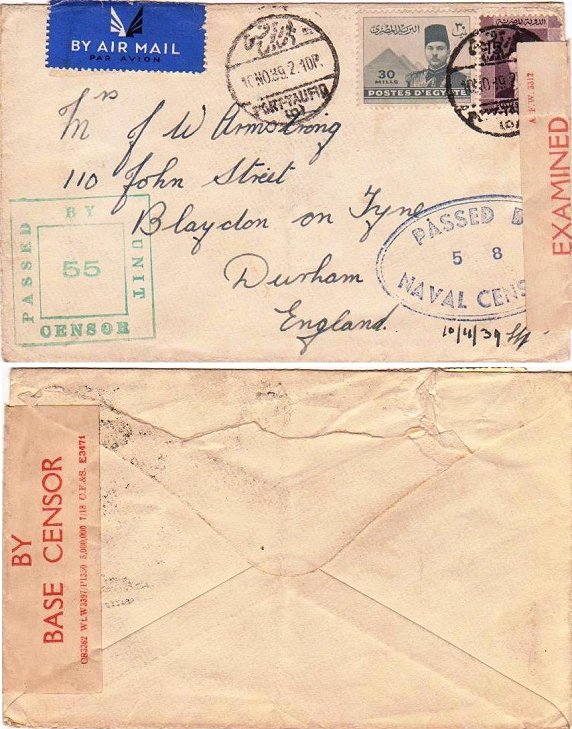 BY AIR MAIL
PAR AVION
10 NO 39 2.10P.
PORT-TAUFIQ
البريد المصرى
٣٠
30
MILLS
POSTES D'EGYPTE
الدولة المصرية
Mrs J W Armstrong
110 John Street
Blaydon on Tyne
Durham
England.
PASSED BY UNIT
55
CENSOR
PASSED
5 8
NAVAL CENS
10/11/39
EXAMINED
BY
BASE CENSOR
5,000,000 7/18 C.F.&S. E3471